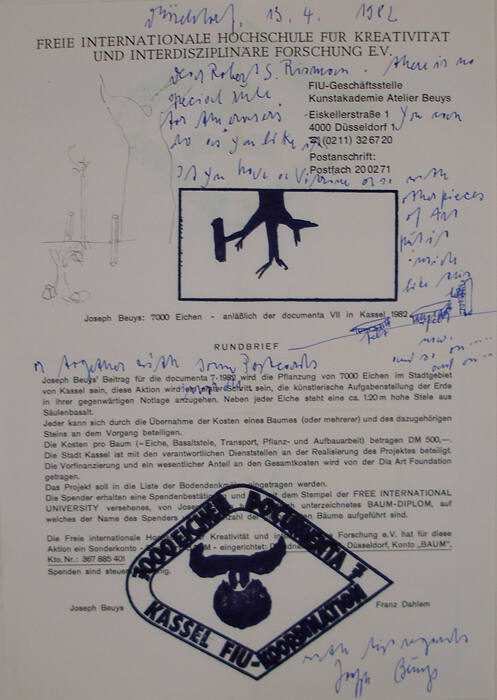 Düsseldorf, 13. 4. 1982
FREIE INTERNATIONALE HOCHSCHULE FÜR KREATIVITÄT
UND INTERDISZIPLINÄRE FORSCHUNG E.V.
Dear Robert S. there is no
special rule
FIU-Geschäftsstelle
Kunstakademie Atelier Beuys
for the
Eiskellerstraße 1
4000 Düsseldorf 1
You can
do as you like it
(0211) 32 67 20
Postanschrift:
Postfach 20 02 71
If you have a Vitrine or so with
other pieces
of Art
put it
inside
like this
Joseph Beuys: 7000 Eichen - anläßlich der documenta VII in Kassel 1982
felt
RUNDBRIEF
and so on....
or together with some Postcards
Joseph Beuys' Beitrag für die documenta 7-1982 wird die Pflanzung von 7000 Eichen im Stadtgebiet
von Kassel sein, diese Aktion wird ein erster Schritt sein, die künstlerische Aufgabenstellung der Erde
in ihrer gegenwärtigen Notlage anzugehen. Neben jeder Eiche steht eine ca. 1.20 m hohe Stele aus
Säulenbasalt.
Jeder kann sich durch die Übernahme der Kosten eines Baumes (oder mehrerer) und des dazugehörigen
Steins an dem Vorgang beteiligen.
Die Kosten pro Baum (= Eiche, Basaltstele, Transport, Pflanz- und Aufbauarbeit) betragen DM 500,—.
Die Stadt Kassel ist mit den verantwortlichen Dienststellen an der Realisierung des Projektes beteiligt.
Die Vorfinanzierung und ein wesentlicher Anteil an den Gesamtkosten wird von der Dia Art Foundation
getragen.
Das Projekt soll in die Liste der Bodendenkmäler eingetragen werden.
Die Spender erhalten eine mit dem Stempel der FREE INTERNATIONAL
UNIVERSITY versehenes, von unterzeichnetes BAUM-DIPLOM, auf
welches der Name des Spenders Bäume aufgeführt sind.
Die Freie internationale Kreativität und Forschung e.V. hat für diese
Aktion ein Sonderkonto eingerichtet: Düsseldorf, Konto „BAUM",
Kto. Nr.: 367 885 401
Spenden sind
7000 EICHEN DOCUMENTA 7
KASSEL FIU-KOORDINATION
Joseph Beuys
Franz Dahlem
with best regards
Joseph Beuys